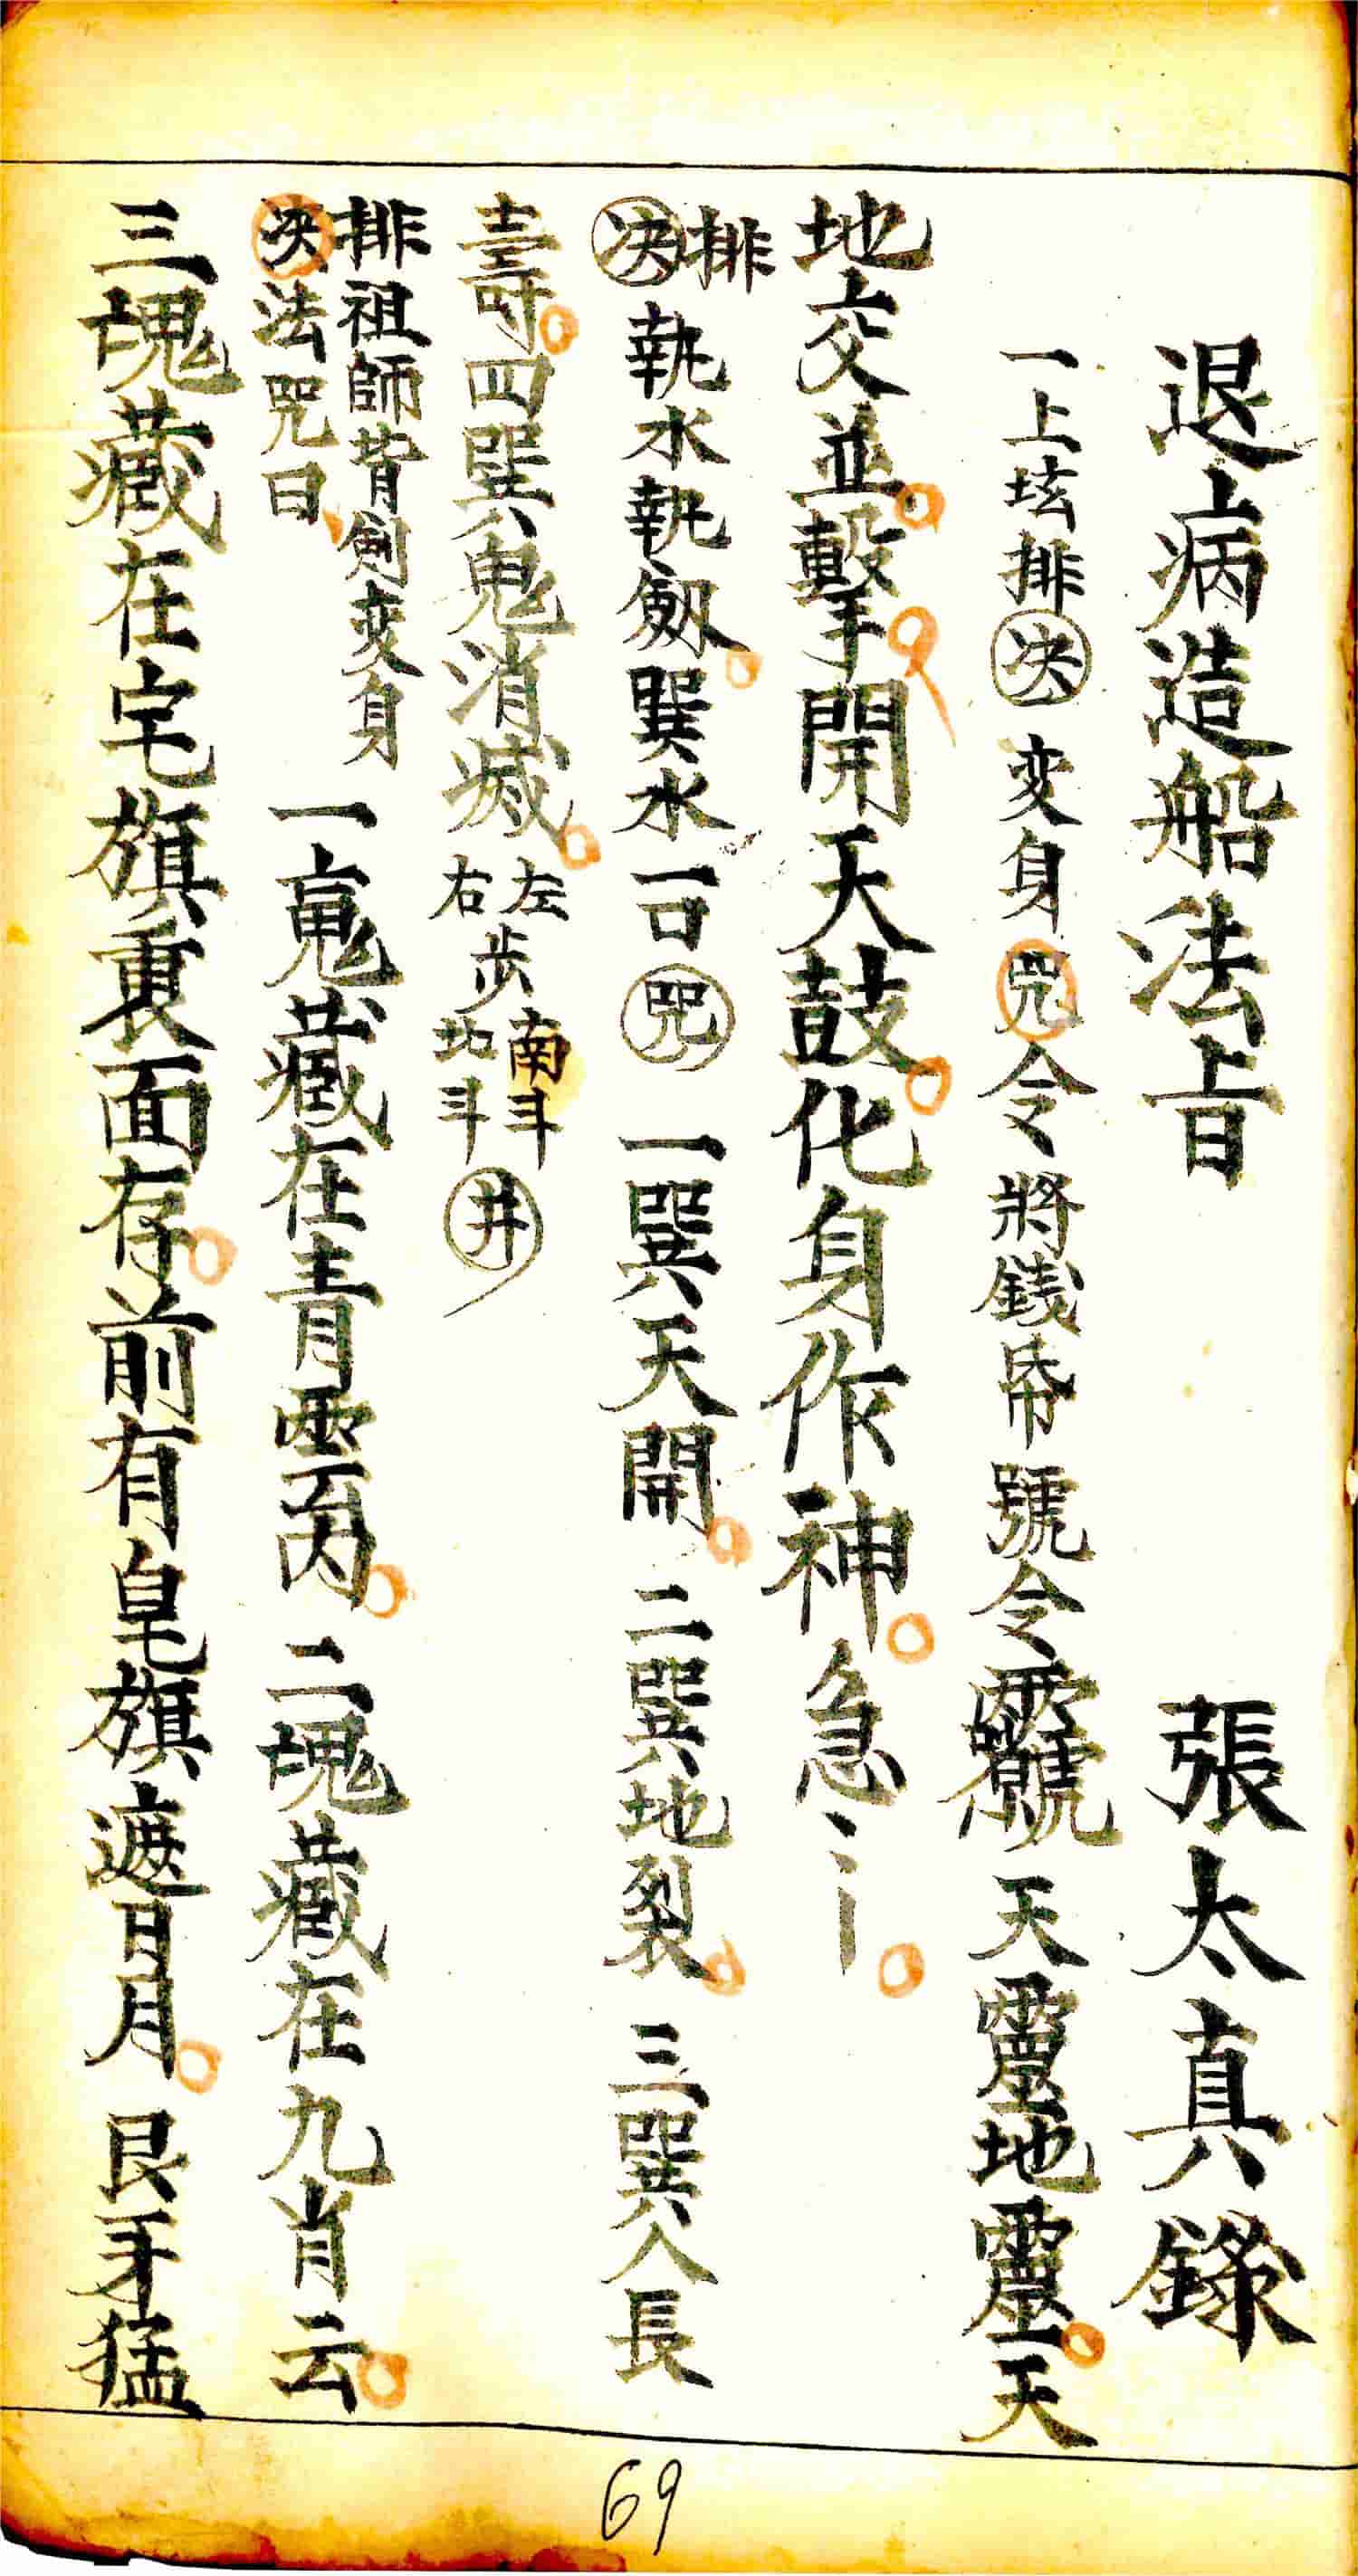 退病造船法旨 張太真錄
一上坛排决变身咒令將錢帋號令 天靈地靈天
地父並擊開天鼓化身作神急〻〡
排决執水執劔巽水一口咒 一巽天開 二巽地裂 三巽人長
壽四巽鬼消滅左右步南斗北斗井
排祖師背劍变身
决法咒曰 一䰟藏在青雲内 二䰟藏在九肖云
三䰟藏在宅旗裏面存前有皇旗遮日月 艮牙猛
69